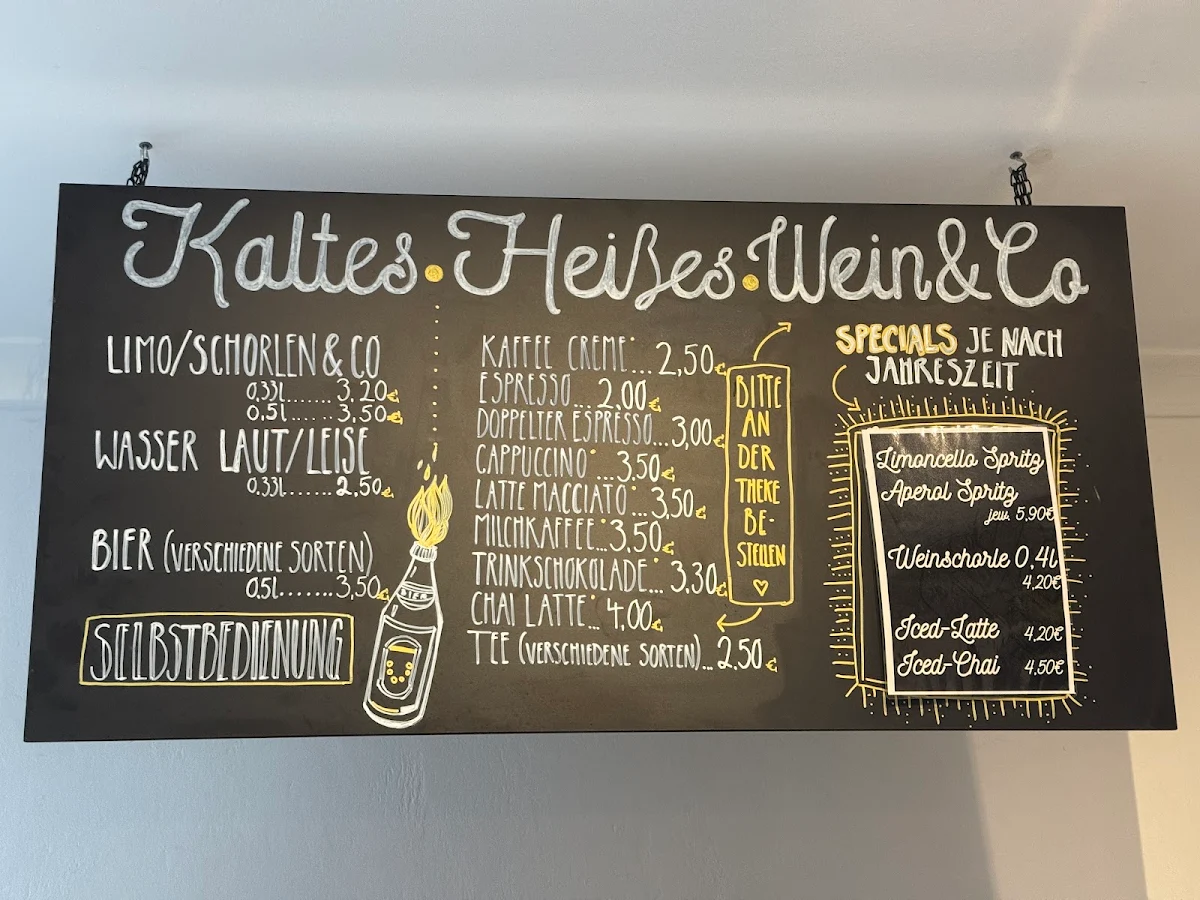 Kaltes • Heißes • Wein & Co
LIMO/SCHORLEN & CO
0,33l....... 3,20€
0,5l....... 3,50€
WASSER LAUT/LEISE
0,33l....... 2,50€
BIER (VERSCHIEDENE SORTEN)
0,5l....... 3,50€
SELBSTBEDIENUNG
BIER
KAFFEE CREME*... 2,50€
ESPRESSO... 2,00€
DOPPELTER ESPRESSO... 3,00€
CAPPUCCINO*... 3,50€
LATTE MACCIATO*... 3,50€
MILCHKAFFEE*... 3,50€
TRINKSCHOKOLADE*... 3,30€
CHAI LATTE*... 4,00€
TEE (VERSCHIEDENE SORTEN)... 2,50€
BITTE
AN
DER
THEKE
BE-
STELLEN
♡
SPECIALS JE NACH
JAHRESZEIT
Limoncello Spritz
Aperol Spritz
jew. 5,90€
Weinschorle 0,4l
4,20€
Iced-Latte 4,20€
Iced-Chai 4,50€